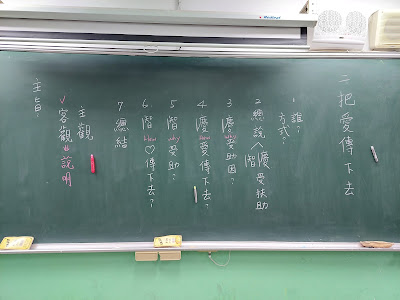 二把愛傳下去
1 誰？
方式？
2 總說〈慶智受扶助
3 慶 why 受助因？
4 慶 How 愛傳下去？
5 智 why 受助？
6 智 How ♡傳下去？
7 總結
主觀
✓客觀⇒說明
主旨：